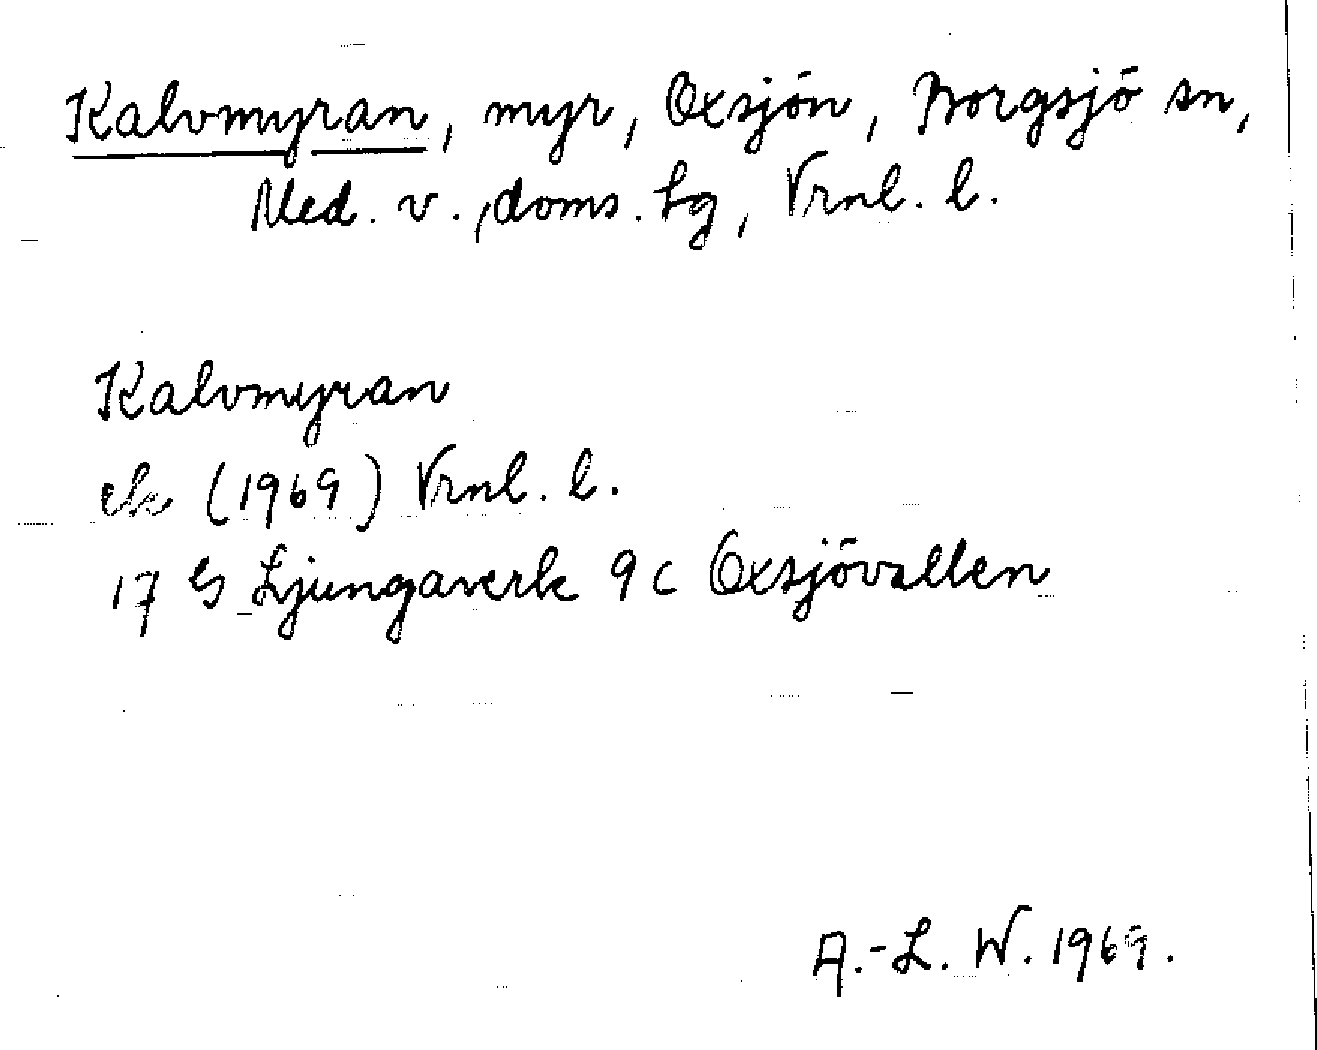 Kalvmyran, myr, Oxsjön, Borgsjö sn,
Med. v., doms. tg, Vrnl. l.
Kalvmyran
ek (1969) Vrnl. l.
17 G Ljungaverk 9 c Oxsjövallen
A.-L. W. 1969.